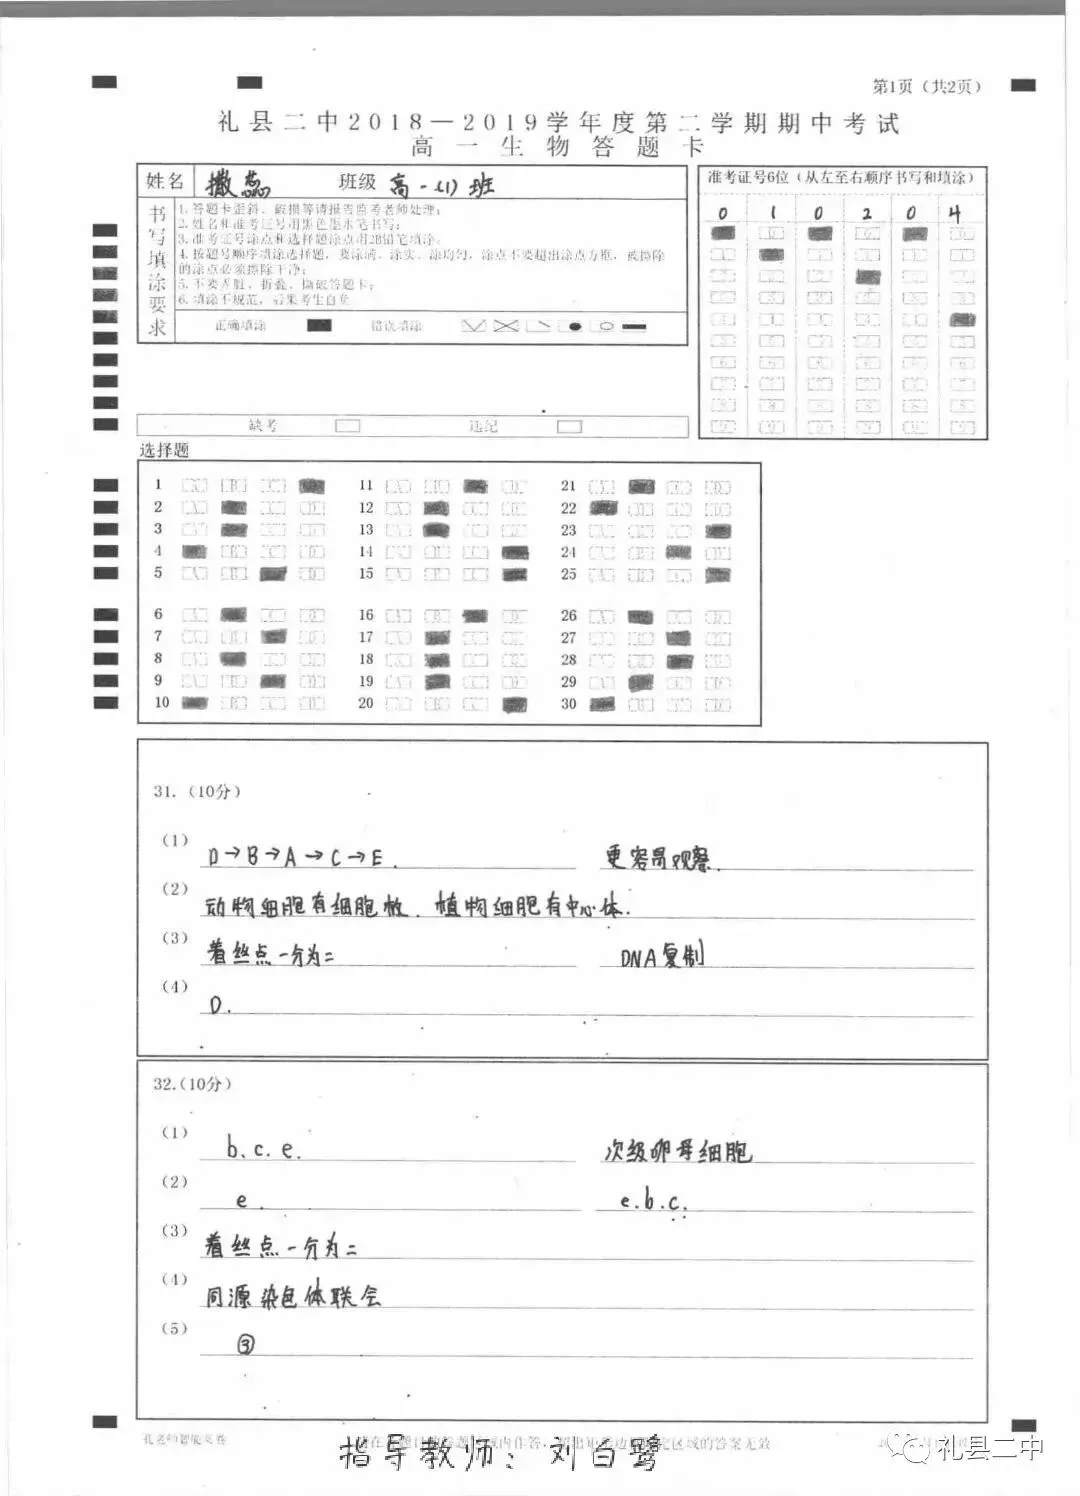 第1页（共2页）
礼县二中2018—2019学年度第二学期期中考试
高一生物答题卡
姓名 撒蕊 班级 高一(1)班
书写填涂要求
1.答题卡歪斜、破损等请报告监考老师处理；
2.姓名和准考证号用黑色墨水笔书写；
3.准考证号涂点和选择题涂点用2B铅笔填涂。
4.按题号顺序填涂选择题，要涂满、涂实、涂均匀，涂点不要超出涂点方框，被擦除
的涂点必须擦除干净；
5.不要弄脏、折叠、撕破答题卡；
6.填涂不规范，后果考生自负
正确填涂 错误填涂
准考证号6位（从左至右顺序书写和填涂）
0 1 0 2 0 4
缺考 违纪
选择题
1 11 21
2 12 22
3 13 23
4 14 24
5 15 25
6 16 26
7 17 27
8 18 28
9 19 29
10 20 30
31.（10分）
(1) D→B→A→C→E. 更容易观察.
(2) 动物细胞有细胞板.植物细胞有中心体.
(3) 着丝点一分为二 DNA复制
(4) D.
32.(10分)
(1) b、c.e. 次级卵母细胞
(2) e. e.b.c.
(3) 着丝点一分为二
(4) 同源染色体联会
(5) ③
孔老师智能阅卷
指导教师：刘白鹭
礼县二中